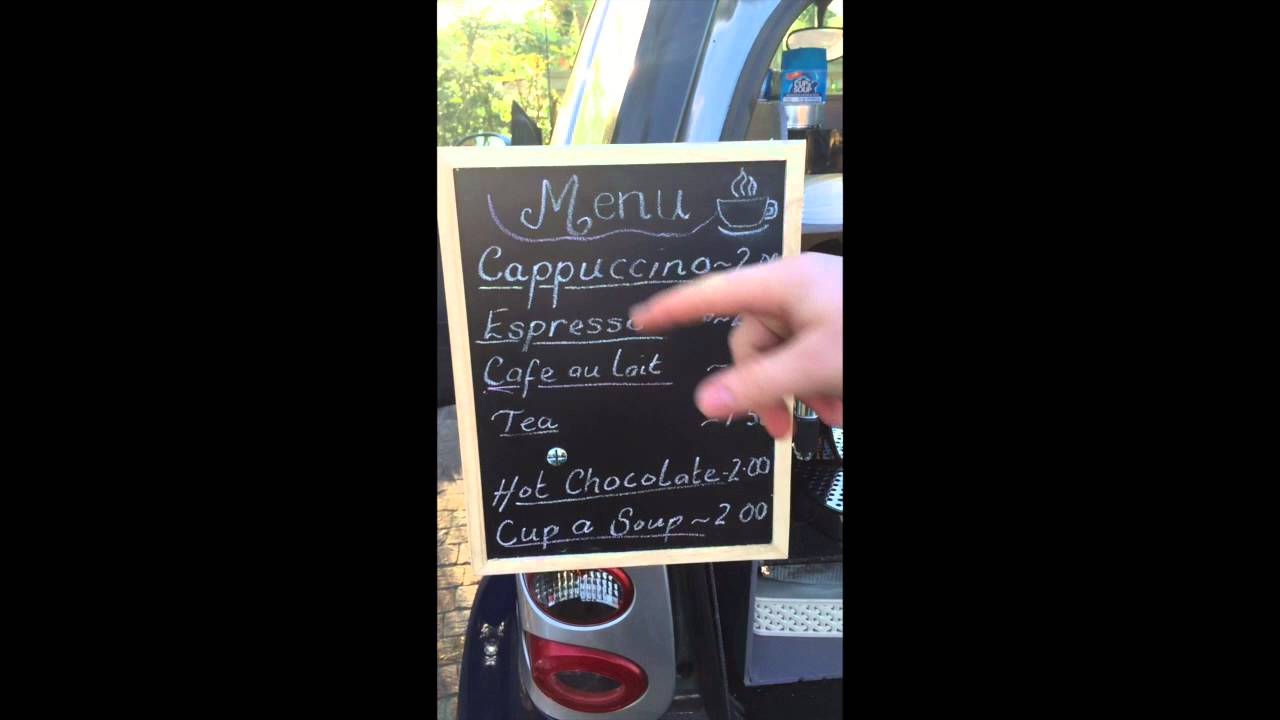 CUP a SOUP
Menu
Cappuccino ~ 2.00
Espresso ~
Cafe au lait ~
Tea ~ 1 50
Hot Chocolate - 2.00
Cup a Soup ~ 2 00